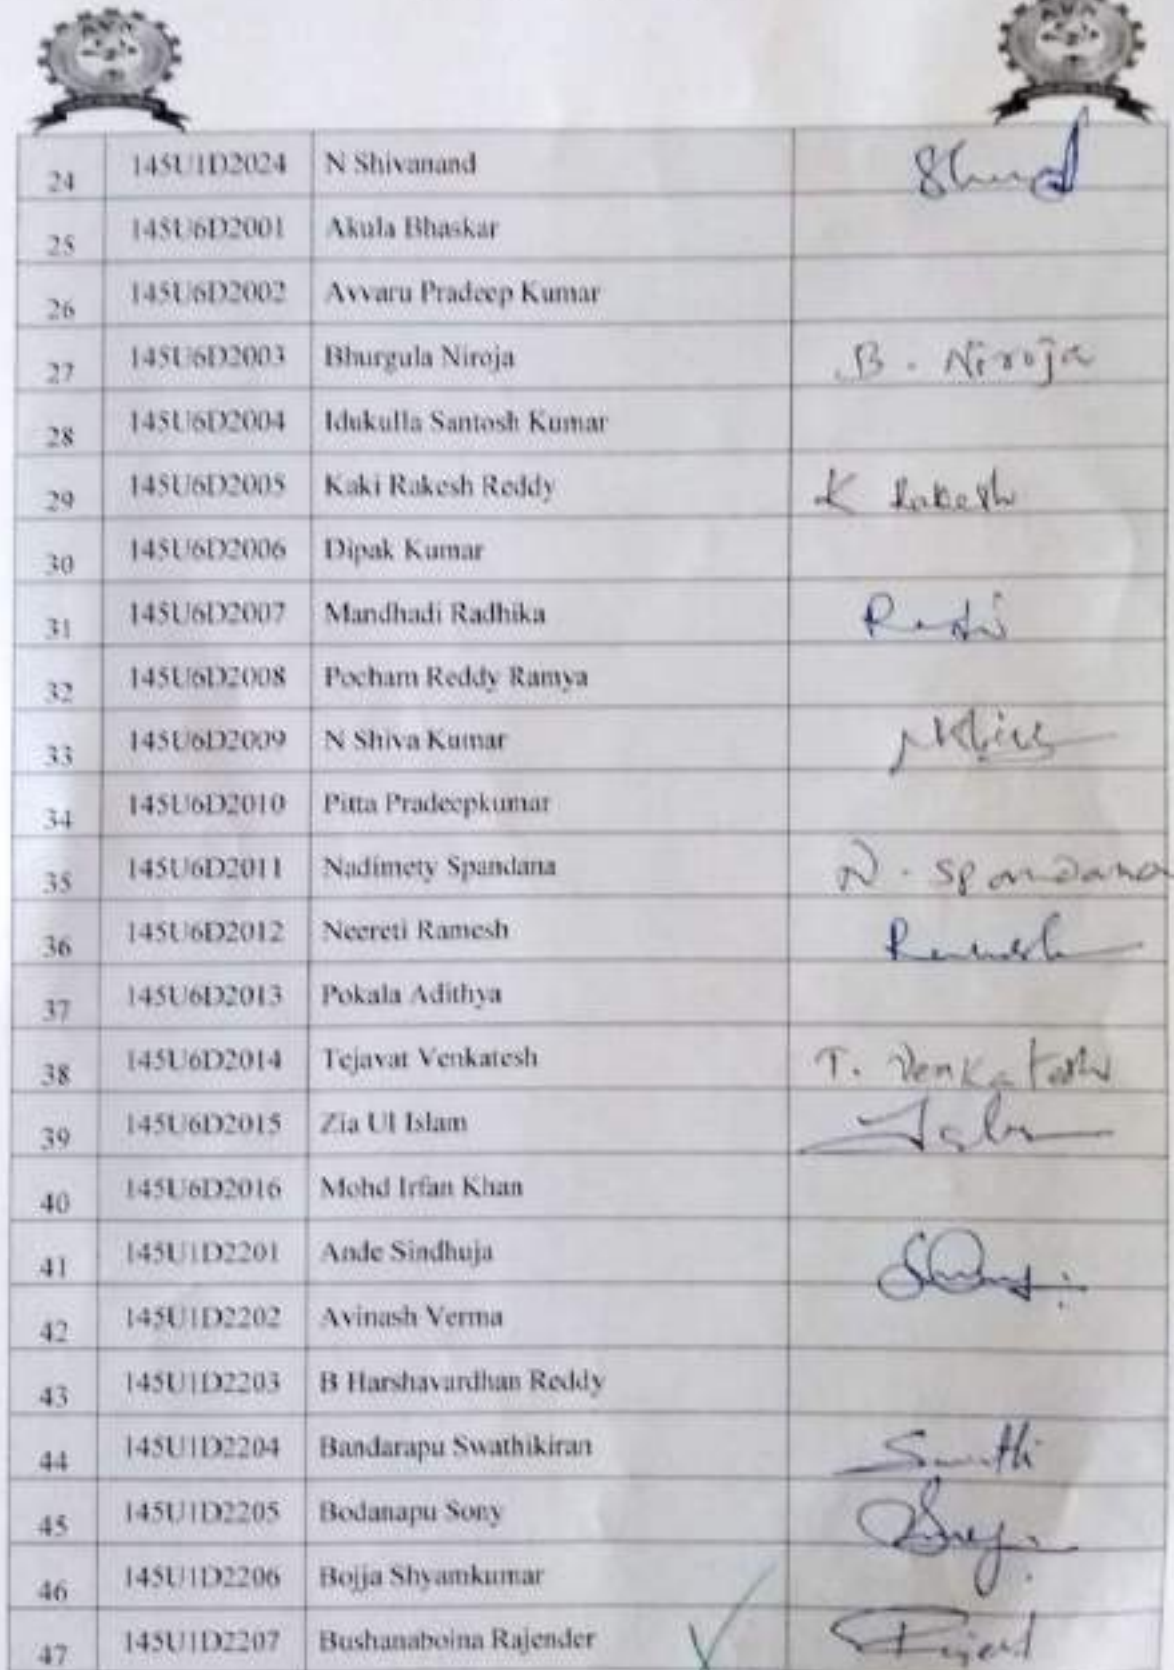 24 145U1D2024 N Shivanand
25 145U6D2001 Akula Bhaskar
26 145U6D2002 Avvaru Pradeep Kumar
27 145U6D2003 Bhurgula Niroja B. Niroja
28 145U6D2004 Idukulla Santosh Kumar
29 145U6D2005 Kaki Rakesh Reddy K Rakesh
30 145U6D2006 Dipak Kumar
31 145U6D2007 Mandhadi Radhika
32 145U6D2008 Pocham Reddy Ramya
33 145U6D2009 N Shiva Kumar
34 145U6D2010 Pitta Pradeepkumar
35 145U6D2011 Nadimety Spandana N. Spandana
36 145U6D2012 Neereti Ramesh Ramesh
37 145U6D2013 Pokala Adithya
38 145U6D2014 Tejavat Venkatesh T. Venkatesh
39 145U6D2015 Zia Ul Islam
40 145U6D2016 Mohd Irfan Khan
41 145U1D2201 Ande Sindhuja
42 145U1D2202 Avinash Verma
43 145U1D2203 B Harshavardhan Reddy
44 145U1D2204 Bandarapu Swathikiran Swathi
45 145U1D2205 Bodanapu Sony
46 145U1D2206 Bojja Shyamkumar
47 145U1D2207 Bushanaboina Rajender